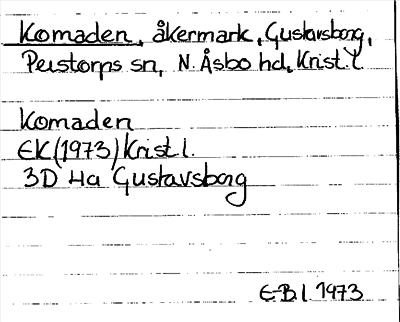 Komaden, åkermark, Gustavsborg,
Perstorps sn, N. Åsbo hd, Krist. l.
Komaden
EK (1973) Krist. l.
3D 4a Gustavsborg
E-B. l. 1973